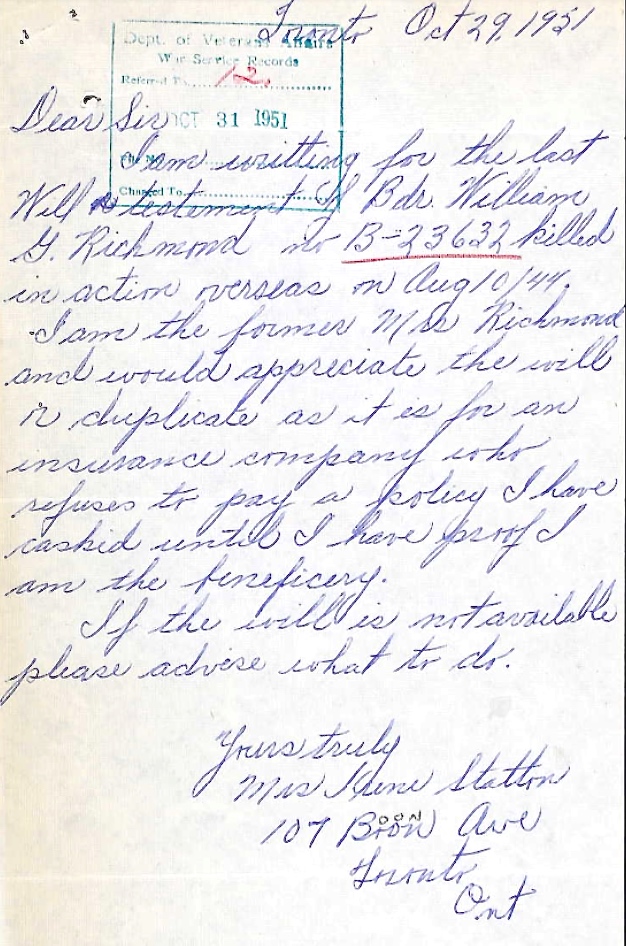 Toronto Oct 29, 1951
Dept. of Veterans Affairs
War Service Records
Referred To 12.
OCT 31 1951
File No.
Charged To
Dear Sir
I am writting for the last
Will & testement of Bdr. William
G. Richmond no B-23632 killed
in action overseas on Aug 10/44.
I am the former Mrs Richmond
and would appreciate the will
or duplicate as it is for an
insurance company who
refuses to pay a policy I have
cashid until I have proof I
am the beneficery.
If the will is not available
please advise what to do.
Yours truly
Mrs Irene Statton
107 Boon Ave
OON
Toronto
Ont